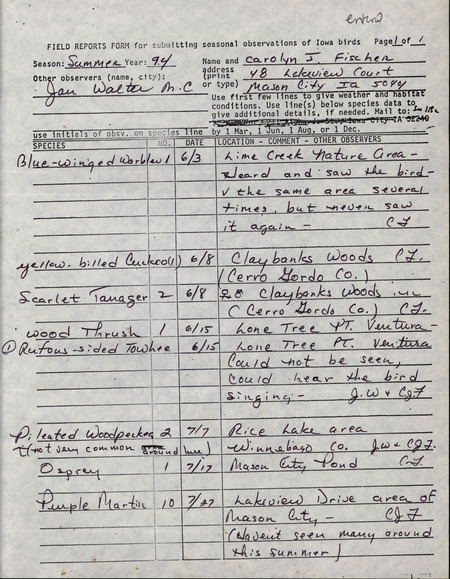 entered
FIELD REPORTS FORM for submitting seasonal observations of Iowa birds Page 1 of 1
Season: Summer Year: 94 Name and Carolyn J. Fischer
address 48 Lakeview Court
Other observers (name, city): (print
or type) Mason City Ia 504
Jan Walter M.C
Use first few lines to give weather and habitat
conditions. Use line(s) below species data to
give additional details, if needed. Mail to:
Iowa City IA 52240
use initials of obsv. on species line by 1 Mar, 1 Jun, 1 Aug, or 1 Dec.
SPECIES NO. DATE LOCATION - COMMENT - OTHER OBSERVERS
Blue-winged Warbler 1 6/3 Lime Creek Nature Area -
Heard and saw the bird -
v the same area several
times, but never saw
it again - CF
yellow-billed Cuckoo (1) 6/8 Claybanks Woods CF.
(Cerro Gordo Co.)
Scarlet Tanager 2 6/8 ♀♂ Claybanks Woods
(Cerro Gordo Co.) CF.
Wood Thrush 1 6/15 Lone Tree PT. Ventura -
(1) Rufous-sided Towhee 6/15 Lone Tree Pt. Ventura
Could not be seen,
could hear the bird
singing - J.W & CJF
Pileated Woodpecker 2 7/7 Rice Lake area
(not very common around here) Winnebago Co. JW & CJF.
Osprey 1 7/17 Mason City Pond CF.
Purple Martin 10 7/27 Lakeview Drive area of
Mason City - CJF
(Haven't seen many around
this summer)